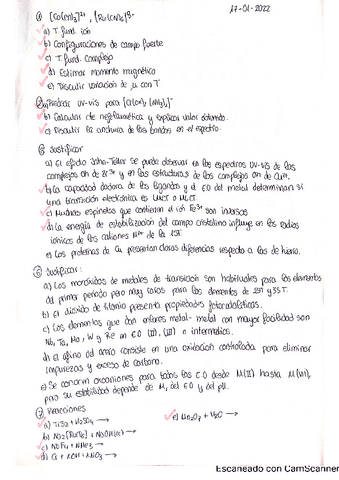 17-01-2022
① [Co(en)3]2+, [Ru(CN)6]3-
a) T. fund. ión
b) Configuraciones de campo fuerte
c) T. fund. complejo
d) Estimar momento magnético
e) Discutir variación de μ con T
a) Predecir UV-vis para
b) Calcular de nefelauxética y explicar valor obtenido.
c) Discutir la anchura de las bandas en el espectro.
Justificar
a) El efecto Jahn-Teller se puede observar en los espectros UV-vis de los
complejos Oh de y en las estructuras de los complejos Oh de
b) La capacidad dadora de los ligandos y el EO del metal determinan si
una transición electrónica es LMCT o MLCT.
c) Muchas espinelas que contienen el ión Fe3+ son inversas
d) La energía de estabilización del campo cristalino influye en los radios
iónicos de los cationes M2+ de la 1ST.
e) Las proteínas de Cu presentan claras diferencias respecto a las de hierro.
⑥ Justificar:
a) Los monóxidos de metales de transición son habituales para los elementos
del primer período pero muy raros para los elementos de 2ST y 3ST.
b) El dióxido de titanio presenta propiedades fotocatalíticas.
c) Los elementos que dan enlaces metal-metal con mayor facilidad son
Nb, Ta, Mo, W y Re en EO (II), (III) o intermedios.
d) El afino del acero consiste en una oxidación controlada para eliminar
impurezas y exceso de carbono.
e) Se conocen oxoaniones para todos los EO desde M(II) hasta M(VIII),
pero su estabilidad depende de M, del EO y del pH.
⑦ Reacciones
a) + H2SO4 →
e) Mn2O7 + H2O →
b) + NaOH(c) →
c) NbF4 + NMe3 →
d) + HCN + →
Escaneado con CamScanner